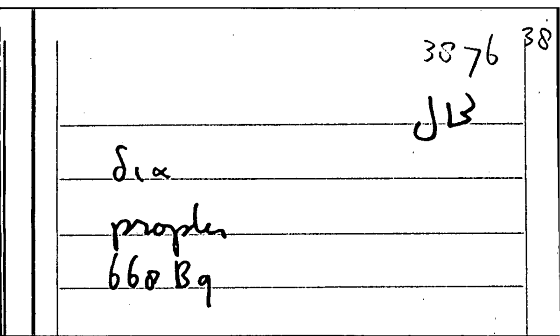 3876 38
JB
δια
propter
668 Bq